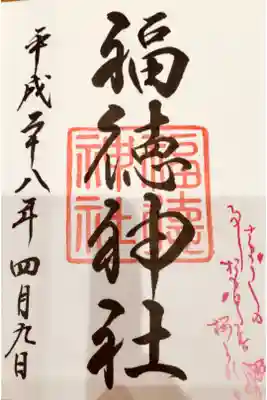 福徳神社
福徳
神社
平成二十八年四月九日